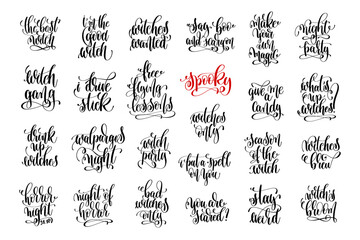 the best
witch
i'm the
good
witch
witches
wanted
say boo
and scary on
make
your
own
magic
night
party
witch
gang
i drive
stick
free
flying
lessons
spooky
give me
candy
what's
up
witches?
drink
up
witches
walpurgis
night
witch
party
witches
only
i put a spell
on you
season
of the
witch
witches
brew
horror
night
night of
horror
bad
witches
only
you are
scared!
stay
weird
witch's
brew!